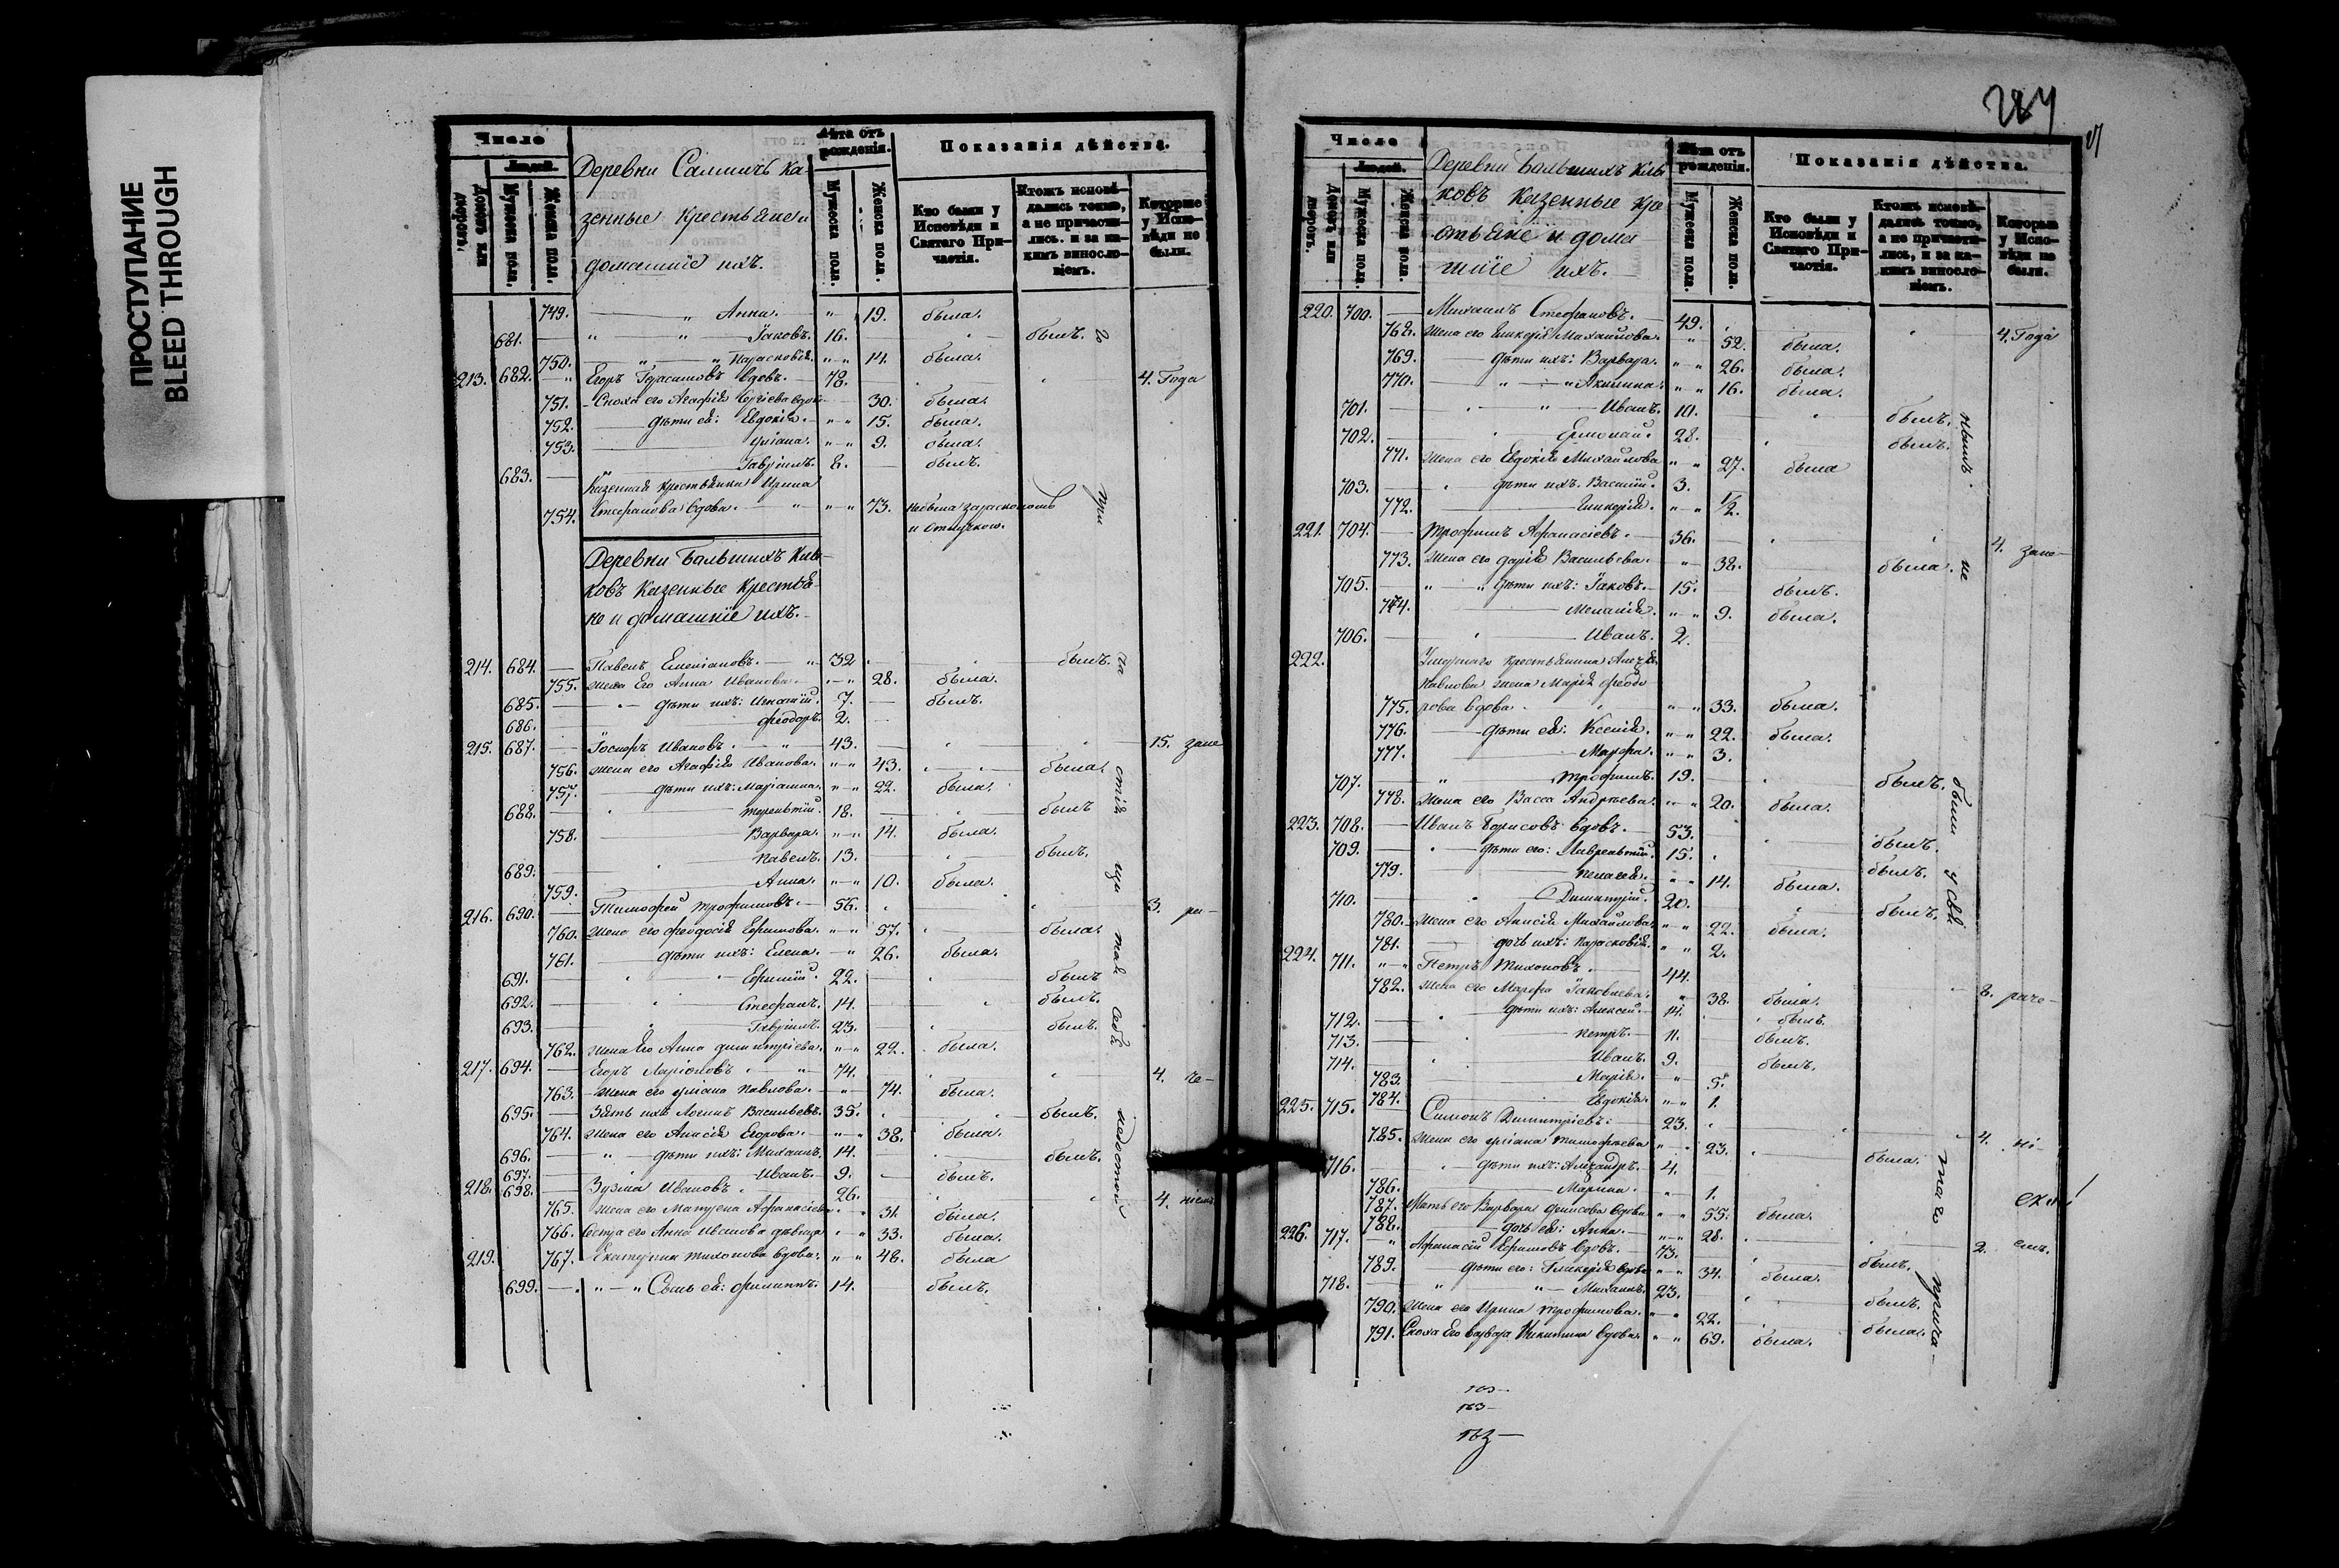 ПРОСТУПАНИЕ
BLEED THROUGH
Число
Людей.
Домовъ или дворовъ.
Мужеска пола.
Женска пола.
Деревни Самичъ ка-
зенные крестьяне и
домашніе ихъ.
Лѣта отъ рожденія.
Мужеска пола.
Женска пола.
Показанія дѣйства.
Кто были у Исповѣди и Святаго При-частія.
Ктожъ исповѣ-дались токмо, а не причасти-лись. и за ка-кимъ винослo-віемъ.
Которые у Испо-вѣди не были.
749. Анна. 19. была.
681. Іаковъ. 16. былъ.
750. Парасковія. 14. была.
213. 682. Егоръ Герасимовъ вдовъ. 78. 4. Года
751. Сноха его Агафія вдова 30. была.
752. дѣти ея: Евдокія. 15. была.
753. Уліана. 9. была.
683. Гавріилъ. 8. былъ.
Казенная крестьянка Ирина
754. Стефанова вдова. 73. небыла за расколомъ
Деревни Большихъ Кль-
ковъ Казенные крестья-
не и домашніе ихъ.
214. 684. Павелъ Емеліановъ. 32 былъ.
755. жена Его Анна Иванова. 28. была.
685. дѣти ихъ: Игнатій. 7. былъ.
686. Феодоръ. 2.
215. 687. Іосифъ Ивановъ. 43. 15. запе
756. жена его Агафія Иванова. 43. была.
757. дѣти ихъ: Маріамна. 22. была.
688. Терентій. 18. былъ
758. Варвара. 14. была.
689. Павелъ. 13. былъ.
759. Анна. 10. была.
216. 690. Тимофей Трофимовъ. 56. 3. ра-
760. Жена его Феодосія Ефимова. 57. была.
761. дѣти ихъ: Елена. 26. была.
691. Ефимій. 22. былъ
692. Стефанъ. 14. былъ.
693. Гавріилъ. 23. былъ.
762. жена Его Анна Димитріева. 22. была.
217. 694. Егоръ Ларіоновъ. 74. 4. че-
763. Жена его Уліана Павлова. 74. была.
695. Зять ихъ Логинъ Васильевъ. 35. былъ.
764. Жена его Анисія Егорова. 38. была.
696. дѣти ихъ: Михаилъ. 14. былъ.
697. Иванъ. 9. былъ.
218. 698. Ивановъ 26. 4. ніемъ
765. Жена его Матрена Афанасіева 31. была.
766. Сестра его Анна Иванова дѣвица 33. была.
219. 767. Екатерина Тихонова вдова. 48. была
699. Сынъ ея: Филиппъ. 14. былъ.
Число
Людей.
Домовъ или дворовъ.
Мужеска пола.
Женска пола.
Деревни Большихъ Кль-
ковъ казенные кре
стьяне и дома
шніе ихъ.
Лѣта отъ рожденія.
Мужеска пола.
Женска пола.
Показанія дѣйства.
Кто были у Исповѣди и Святаго При-частія.
Ктожъ исповѣ-дались токмо, а не причасти-лись, и за ка-кимъ винослo-віемъ.
Которые у Испо-вѣди не были.
220. 700. Михаилъ Стефановъ. 49. 4. Года
768. Жена его Гликерія Михайлова. 52. была.
769. дѣти ихъ: Варвара. 26. была.
770. Акилина. 16. была.
701. Иванъ. 10. былъ.
702. Ермолай. 28. былъ.
771. Жена его Евдокія Михайлова 27. была
703. дѣти ихъ. Василій. 3.
772. Гликерія. 1/2.
221. 704. Трофимъ Афанасіевъ. 36. 4. запе-
773. Жена его Дарія Васильева. 38. была.
705. дѣти ихъ: Іаковъ. 15. былъ.
774. Меланія. 9. была.
706. Иванъ. 2.
222. Умершаго крестьянина
Павлова жена Марія Феодо
775. рова вдова 33. была.
776. дѣти ея: Ксенія. 22. была.
777. Марфа. 3.
707. Трофимъ. 19. былъ.
778. Жена его Васса Андреева. 20. была.
223. 708. Иванъ Борисовъ вдовъ. 53. былъ.
709. дѣти его: Лаврентій. 15. былъ.
779. Пелагея. 14. была.
710. Димитрій. 20. былъ.
780. Жена его Анисія Михайлова. 22. была.
781. дочь ихъ: Парасковія. 2.
224. 711. Петръ Тихоновъ. 44. 8. раче-
782. Жена его Марфа Іаковлева. 38. была.
712. дѣти ихъ: Алексей. 14. былъ.
713. Петръ. 11. былъ.
714. Иванъ. 9. былъ.
783. Марія. 5.
784. Евдокія. 1.
225. 715. Симонъ Димитріевъ. 23. 4. ні-
785. Жена его Уліана Тимофеева 23. была.
716. дѣти ихъ: Александръ. 4.
786. Марина. 1.
787. Мать его Варвара Денисова вдова 55. была.
788. дочь ея: Анна. 28.
226. 717. Афанасій Ефимовъ вдовъ. 73. 2. емъ.
789. дѣти его: Гликерія вдова 34. была. былъ.
718. Михаилъ. 23. былъ.
790. Жена его Ирина Трофимова. 22. была.
791. Сноха Его Варвара Никитина вдова. 69. была.